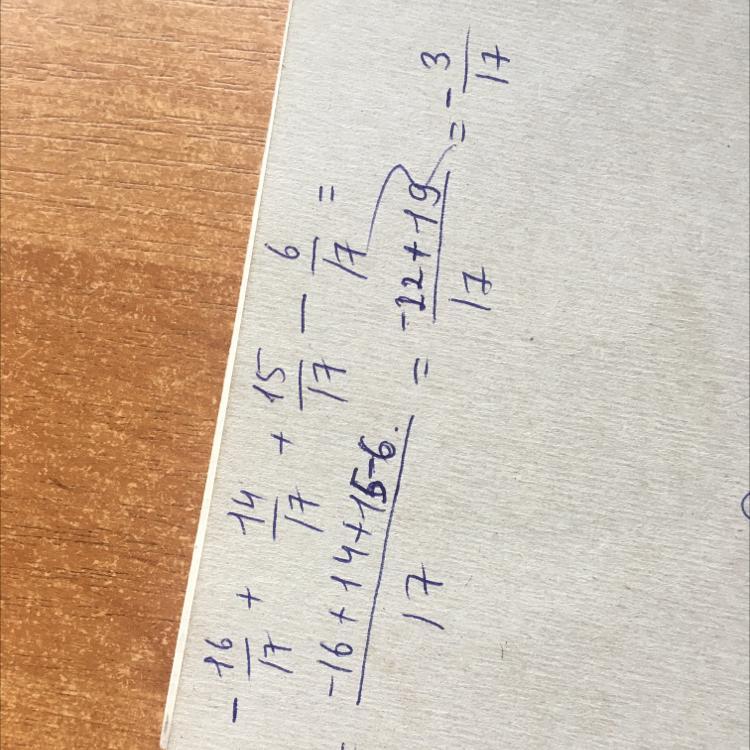 - 16/17 + 14/17 + 15/17 - 6/17 =
= -16+14+15-6/17 = -22+19/17 = -3/17